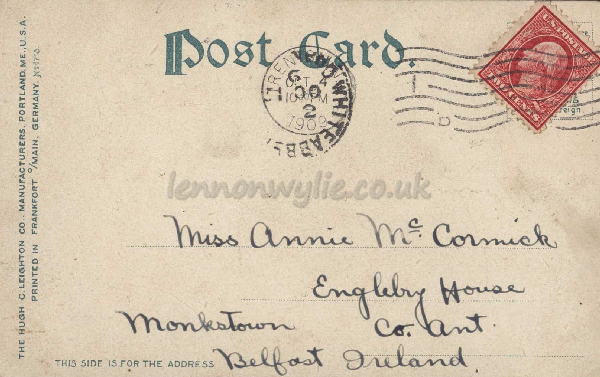 Post Card.
TRENTON
OCT 4
10 PM
1909
WHITEABBEY
lennonwylie.co.uk
U.S. POSTAGE
TWO CENTS
Miss Annie McCormick
Engleby House
Monkstown Co. Ant.
Belfast Ireland.
THIS SIDE IS FOR THE ADDRESS
THE HUGH C. LEIGHTON CO., MANUFACTURERS, PORTLAND, ME., U.S.A.
PRINTED IN FRANKFORT O/MAIN, GERMANY.